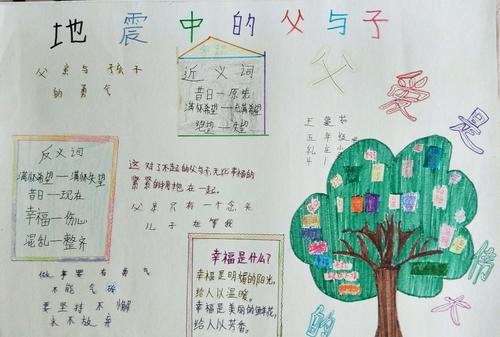 地震中的父与子
父亲与孩子
的勇气
近义词
昔日—原先
满怀希望—充满希望
绝望—失望
父爱是伟大的
五年级
41
反义词
满怀希望—满怀失望
昔日—现在
幸福—伤心
混乱—整齐
这对了不起的父与子无比幸福的
紧紧的拥抱在一起。
父亲只有一个念头
儿子在等我
做事要有勇气
不能气碎
要坚持不懈
永不放弃
幸福是什么?
幸福是明媚的阳光,
给人以温暖。
幸福是美丽的鲜花,
给人以芳香。